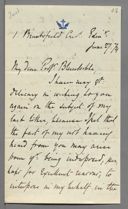 1 Bruntsfield Cres. Edinr.
June 27/76
My Dear Profr. Blackie,
I have may
delicacy in writing to you
again on the subject of my
last letter, because I feel that
the fact of my not having
heard from you may arise
from yr. being indisposed, per-
haps for excellent reasons, to
interfere in my behalf in the